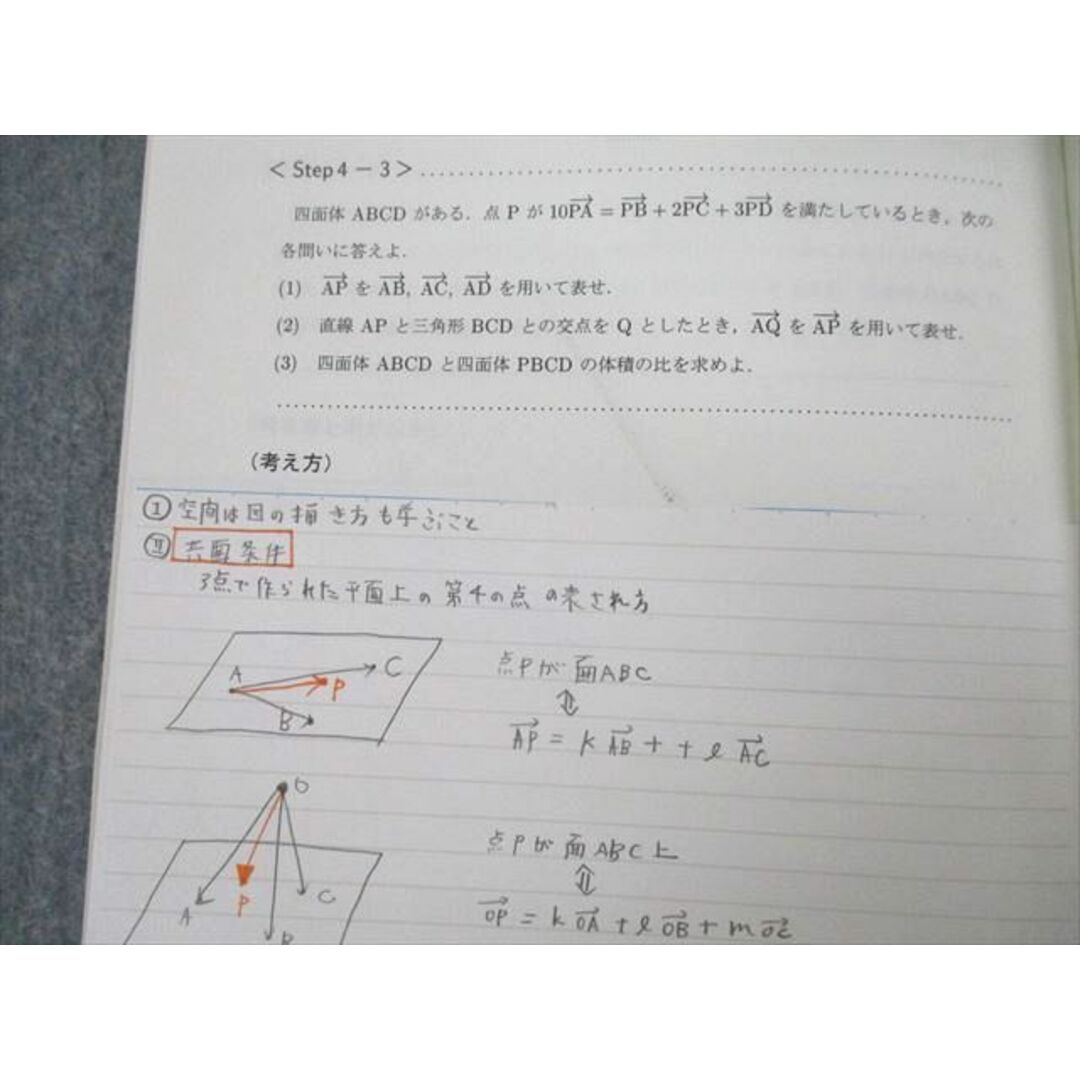 < Step 4 − 3 >
四面体 ABCD がある. 点 P が 10PA = PB + 2PC + 3PD を満たしているとき, 次の
各問いに答えよ.
(1) AP を AB, AC, AD を用いて表せ.
(2) 直線 AP と三角形 BCD との交点を Q としたとき, AQ を AP を用いて表せ.
(3) 四面体 ABCD と四面体 PBCD の体積の比を求めよ.
(考え方)
① 空間は図の描き方も学ぶこと
② 共面条件
3点で作られた平面上の第4の点の表され方
A
C
P
B
点Pが面ABC
⇕
AP = k AB + + l AC
O
A
P
C
B
点Pが面ABC上
⇕
OP = k OA + l OB + m OC